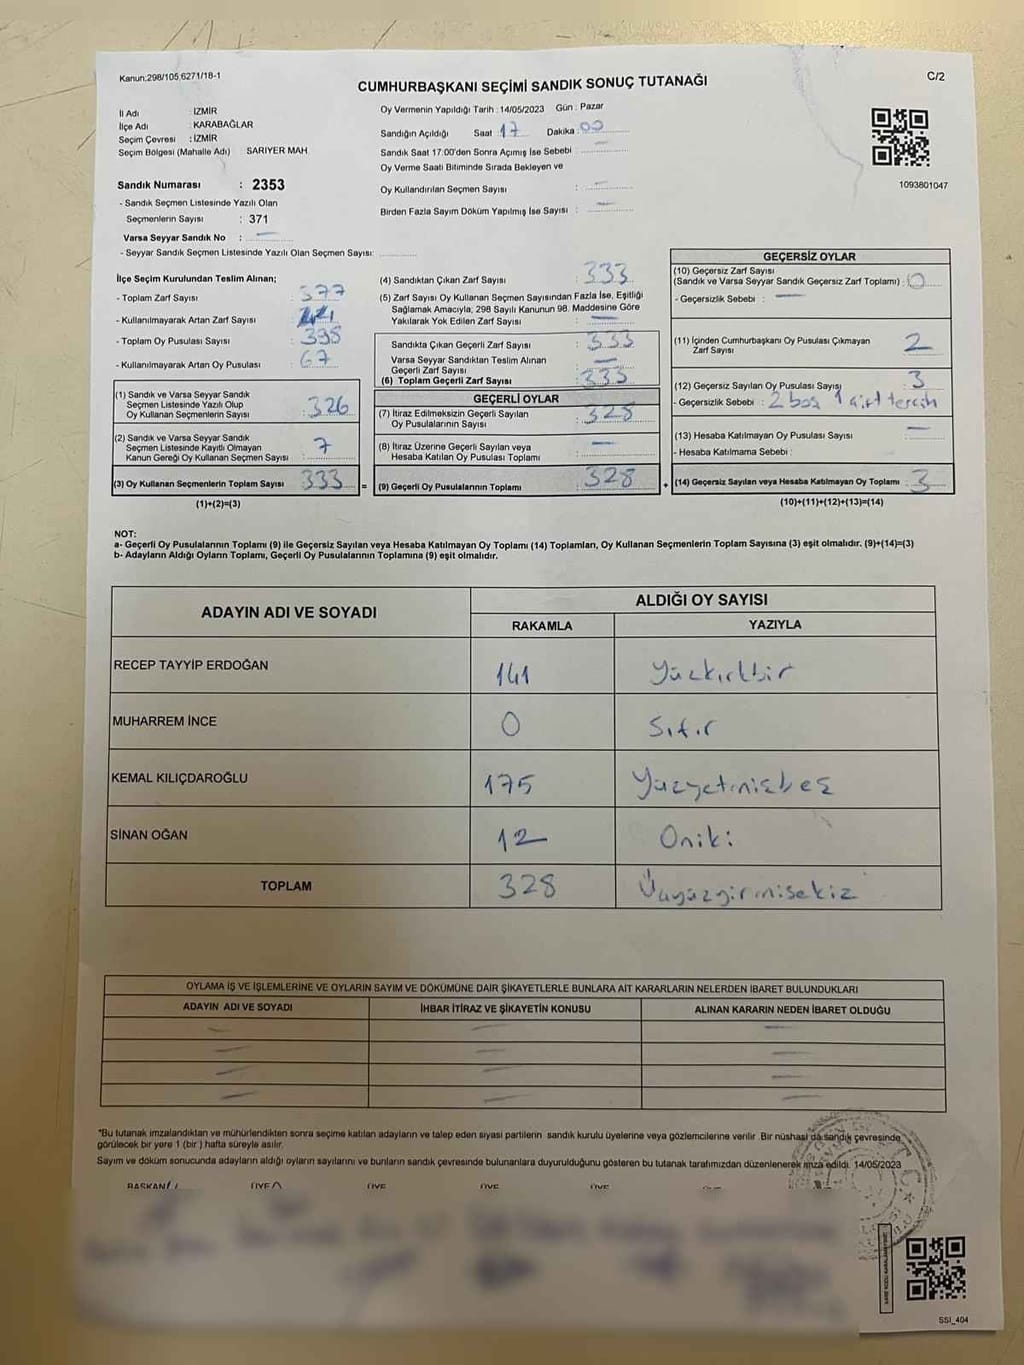 Kanun;298/105;6271/18-1
CUMHURBAŞKANI SEÇİMİ SANDIK SONUÇ TUTANAĞI
C/2
İl Adı : İZMİR
İlçe Adı : KARABAĞLAR
Seçim Çevresi : İZMİR
Seçim Bölgesi (Mahalle Adı) SARIYER MAH
Sandık Numarası : 2353
- Sandık Seçmen Listesinde Yazılı Olan
Seçmenlerin Sayısı : 371
Varsa Seyyar Sandık No :
- Seyyar Sandık Seçmen Listesinde Yazılı Olan Seçmen Sayısı:
Oy Vermenin Yapıldığı Tarih : 14/05/2023 Gün : Pazar
Sandığın Açıldığı Saat 17 Dakika 00
Sandık Saat 17:00'den Sonra Açımış İse Sebebi :
Oy Verme Saati Bitiminde Sırada Bekleyen ve
Oy Kullandırılan Seçmen Sayısı :
Birden Fazla Sayım Döküm Yapılmış İse Sayısı :
1093801047
İlçe Seçim Kurulundan Teslim Alınan;
- Toplam Zarf Sayısı : 377
- Kullanılmayarak Artan Zarf Sayısı :
- Toplam Oy Pusulası Sayısı : 395
- Kullanılmayarak Artan Oy Pusulası : 67
(1) Sandık ve Varsa Seyyar Sandık
Seçmen Listesinde Yazılı Olup
Oy Kullanan Seçmenlerin Sayısı : 326
(2) Sandık ve Varsa Seyyar Sandık
Seçmen Listesinde Kayıtlı Olmayan
Kanun Gereği Oy Kullanan Seçmen Sayısı : 7
(3) Oy Kullanan Seçmenlerin Toplam Sayısı : 333 =
(1)+(2)=(3)
(4) Sandıktan Çıkan Zarf Sayısı : 333
(5) Zarf Sayısı Oy Kullanan Seçmen Sayısından Fazla İse, Eşitliği
Sağlamak Amacıyla; 298 Sayılı Kanunun 98. Maddesine Göre
Yakılarak Yok Edilen Zarf Sayısı :
Sandıkta Çıkan Geçerli Zarf Sayısı : 333
Varsa Seyyar Sandıktan Teslim Alınan
Geçerli Zarf Sayısı :
(6) Toplam Geçerli Zarf Sayısı : 333
GEÇERLİ OYLAR
(7) İtiraz Edilmeksizin Geçerli Sayılan
Oy Pusulalarının Sayısı : 328
(8) İtiraz Üzerine Geçerli Sayılan veya
Hesaba Katılan Oy Pusulası Toplamı :
(9) Geçerli Oy Pusulalarının Toplamı : 328 +
GEÇERSİZ OYLAR
(10) Geçersiz Zarf Sayısı
(Sandık ve Varsa Seyyar Sandık Geçersiz Zarf Toplamı) : 0
- Geçersizlik Sebebi :
(11) İçinden Cumhurbaşkanı Oy Pusulası Çıkmayan
Zarf Sayısı : 2
(12) Geçersiz Sayılan Oy Pusulası Sayısı : 3
- Geçersizlik Sebebi : 2 boş 1 çift tercih
(13) Hesaba Katılmayan Oy Pusulası Sayısı
- Hesaba Katılmama Sebebi :
(14) Geçersiz Sayılan veya Hesaba Katılmayan Oy Toplamı : 3
(10)+(11)+(12)+(13)=(14)
NOT:
a- Geçerli Oy Pusulalarının Toplamı (9) ile Geçersiz Sayılan veya Hesaba Katılmayan Oy Toplamı (14) Toplamları, Oy Kullanan Seçmenlerin Toplam Sayısına (3) eşit olmalıdır. (9)+(14)=(3)
b- Adayların Aldığı Oyların Toplamı, Geçerli Oy Pusulalarının Toplamına (9) eşit olmalıdır.
ADAYIN ADI VE SOYADI
ALDIĞI OY SAYISI
RAKAMLA YAZIYLA
RECEP TAYYİP ERDOĞAN 141 Yüzkırkbir
MUHARREM İNCE 0 Sıfır
KEMAL KILIÇDAROĞLU 175 Yüzyetmişbeş
SİNAN OĞAN 12 Oniki
TOPLAM 328 Üçyüzyirmisekiz
OYLAMA İŞ VE İŞLEMLERİNE VE OYLARIN SAYIM VE DÖKÜMÜNE DAİR ŞİKAYETLERLE BUNLARA AİT KARARLARIN NELERDEN İBARET BULUNDUKLARI
ADAYIN ADI VE SOYADI İHBAR İTİRAZ VE ŞİKAYETİN KONUSU ALINAN KARARIN NEDEN İBARET OLDUĞU
*Bu tutanak imzalandıktan ve mühürlendikten sonra seçime katılan adayların ve talep eden siyasi partilerin sandık kurulu üyelerine veya gözlemcilerine verilir. Bir nüshası da sandık çevresinde
görülecek bir yere 1 (bir) hafta süreyle asılır.
Sayım ve döküm sonucunda adayların aldığı oyların sayılarını ve bunların sandık çevresinde bulunanlara duyurulduğunu gösteren bu tutanak tarafımızdan düzenlenerek imza edildi. 14/05/2023
BAŞKAN ÜYE ÜYE ÜYE ÜYE
T.C.
SSİ_404